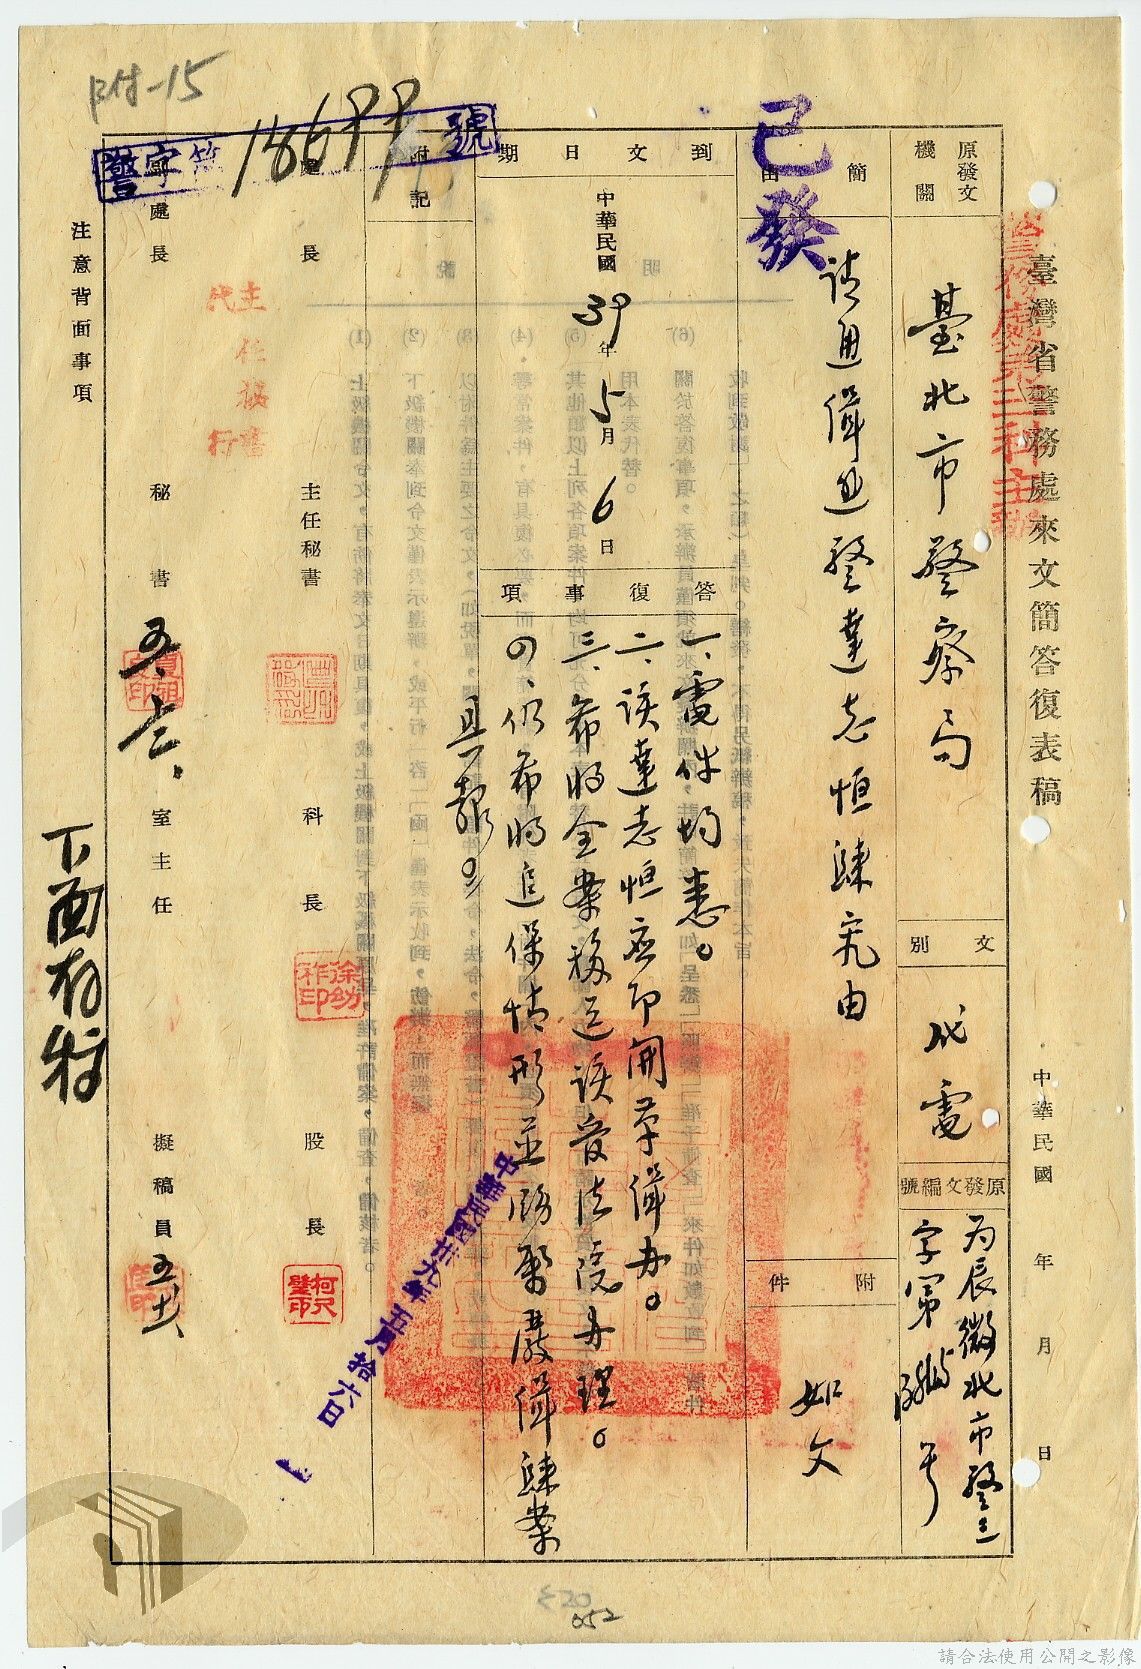 附-15
警字第18699號
已發
臺灣省警務處來文簡答復表稿
中華民國 年 月 日
原發文機關
臺北市警察局
文別
代電
原發文編號
丙辰微北市警三
字第 號
簡由
請通緝逃警達志恒歸案由
附件
如文
到文日期
中華民國39年5月6日
答復事項
一、電件均悉。
二、該達志恒應即開革緝办。
三、希將全案移送該管法院办理。
四、仍希將追保情形並勵密嚴緝歸案
具報。
附記
中華民國卅九年五月拾六日
處長
主任秘書
科長
徐幼祚印
股長
副處長
主任秘書
代行
秘書
五、六、
室主任
擬稿員
注意背面事項
下面存稿
052
請合法使用公開之影像